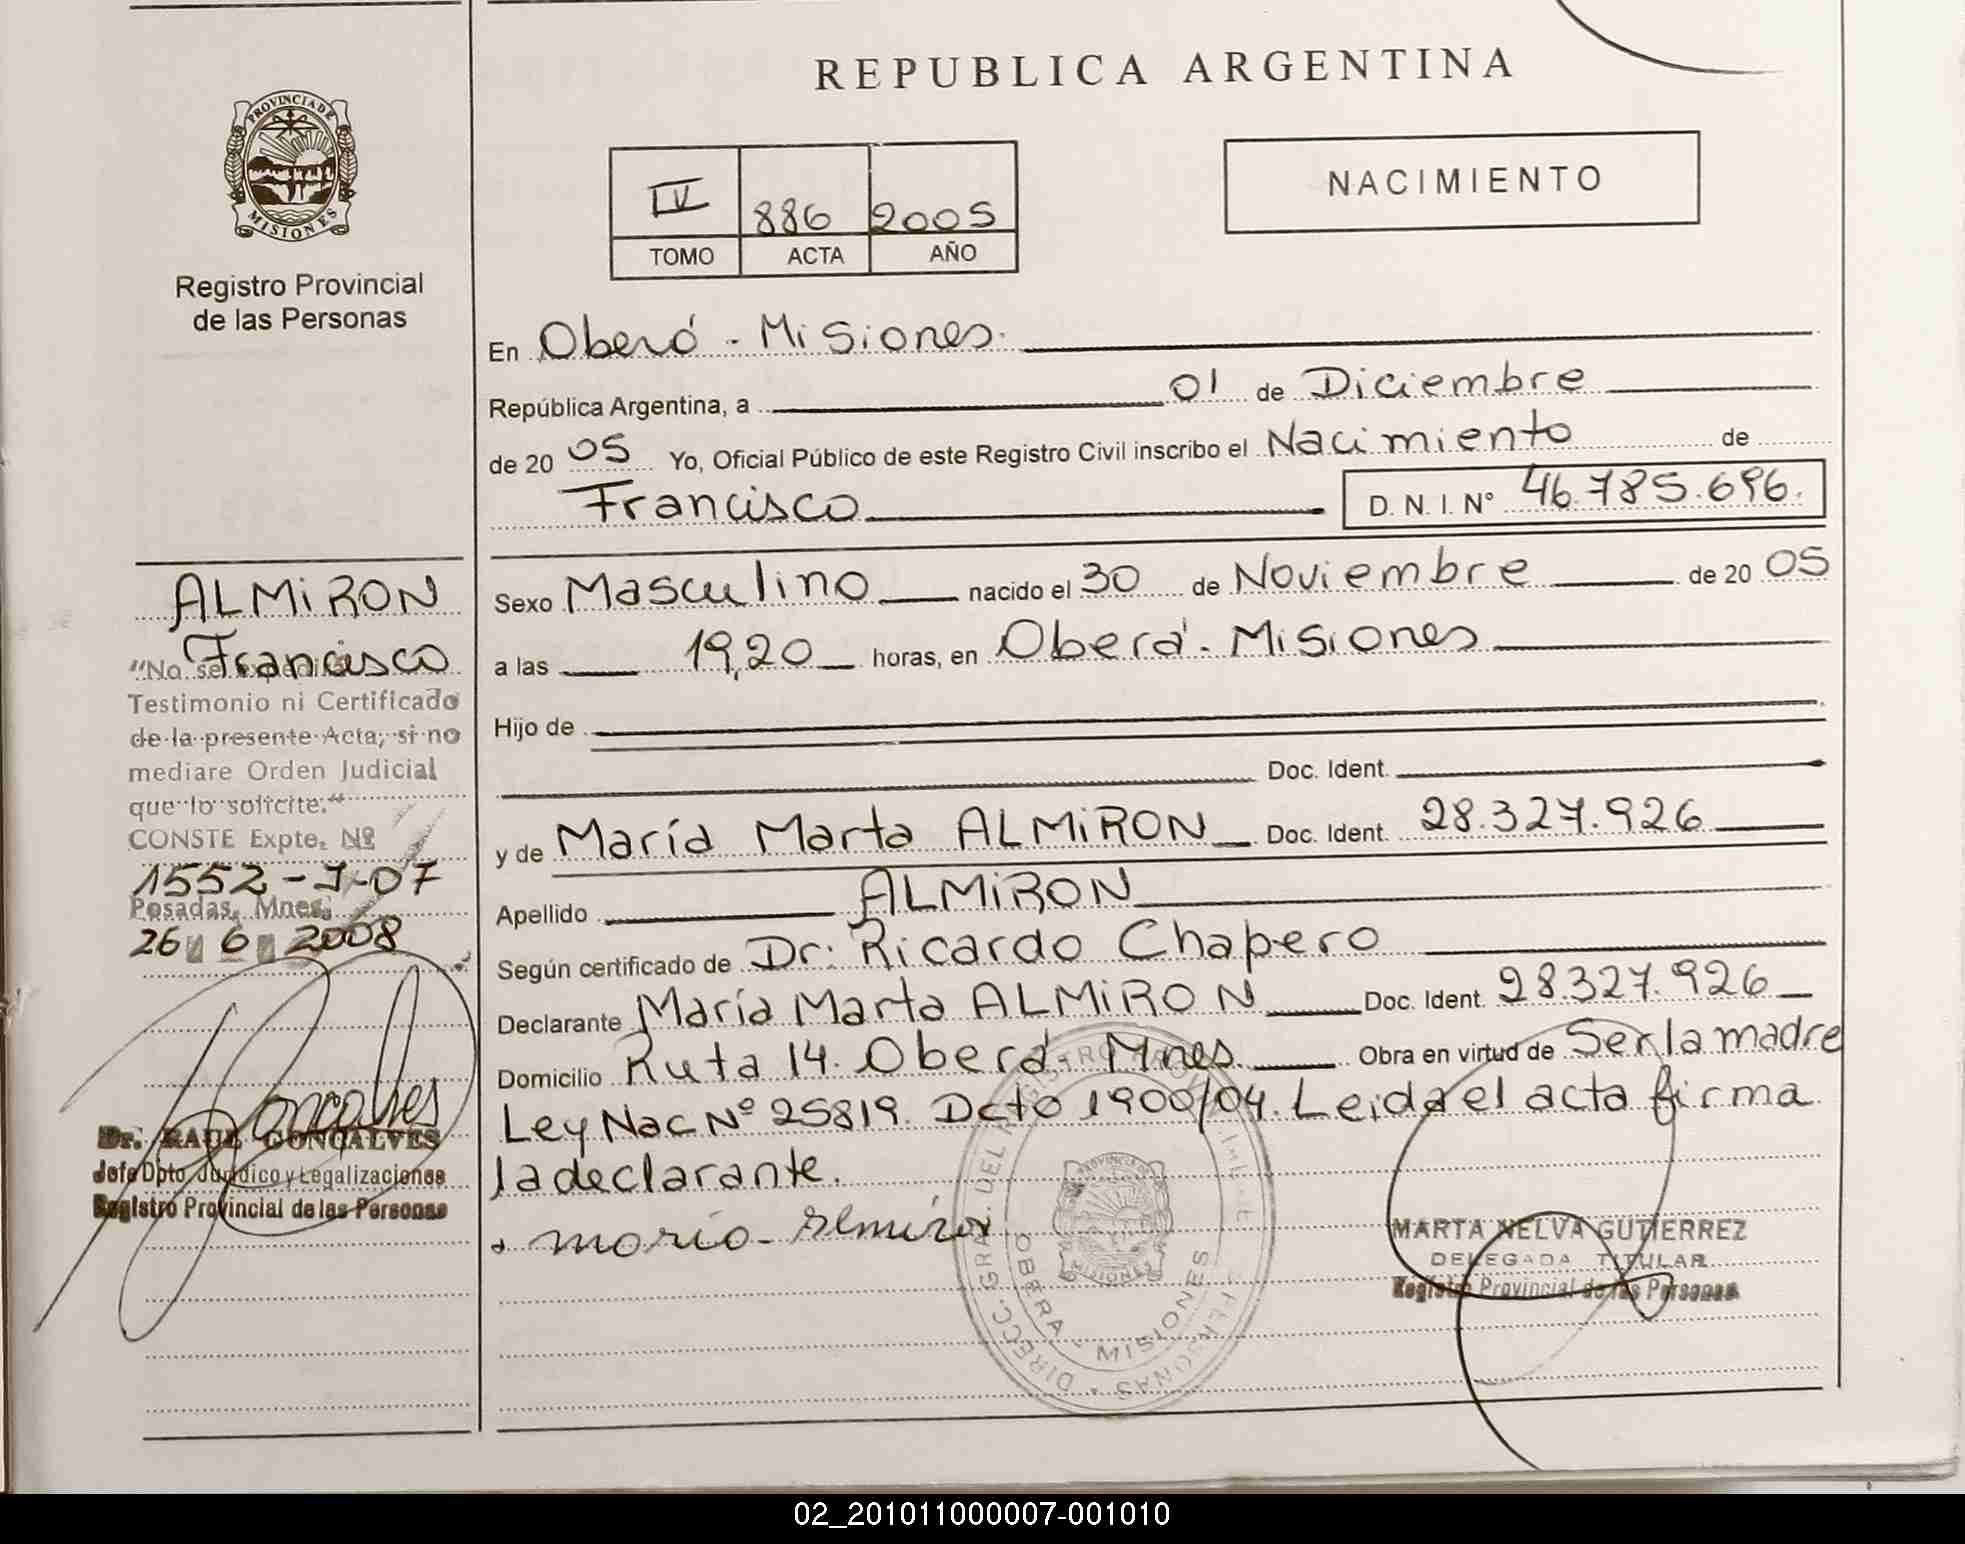 REPUBLICA ARGENTINA
PROVINCIA DE
MISIONES
Registro Provincial
de las Personas
IV 886 2005
TOMO ACTA AÑO
NACIMIENTO
En Oberá - Misiones.
República Argentina, a 01 de Diciembre
de 20 05 Yo, Oficial Público de este Registro Civil inscribo el Nacimiento de
Francisco D. N. I. N° 46.785.696.
Sexo Masculino nacido el 30 de Noviembre de 20 05
a las 19,20 horas, en Oberá - Misiones
Hijo de
Doc. Ident.
y de María Marta ALMiRON Doc. Ident. 28.327.926
Apellido ALMiRON
Según certificado de Dr: Ricardo Chapero
Declarante María Marta ALMiRON Doc. Ident. 28.327.926
Domicilio Ruta 14. Oberá - Mnes. Obra en virtud de Ser la madre
Ley Nac Nº 25819. Dcto 1900/04. Leida el acta firma
la declarante.
ALMiRON
Francisco
"No se expedirá
Testimonio ni Certificado
de la presente Acta, si no
mediare Orden Judicial
que lo solicite."
CONSTE Expte. Nº
1552-J-07
Posadas, Mnes.
26 6 2008
Goncalves
Dr. RAUL GONCALVES
Jefe Dpto. Jurídico y Legalizaciones
Registro Provincial de las Personas
OBERA - MISIONES
PROVINCIA DE
MISIONES
MARTA NELVA GUTIERREZ
DELEGADA TITULAR
Registro Provincial de las Personas
02_201011000007-001010